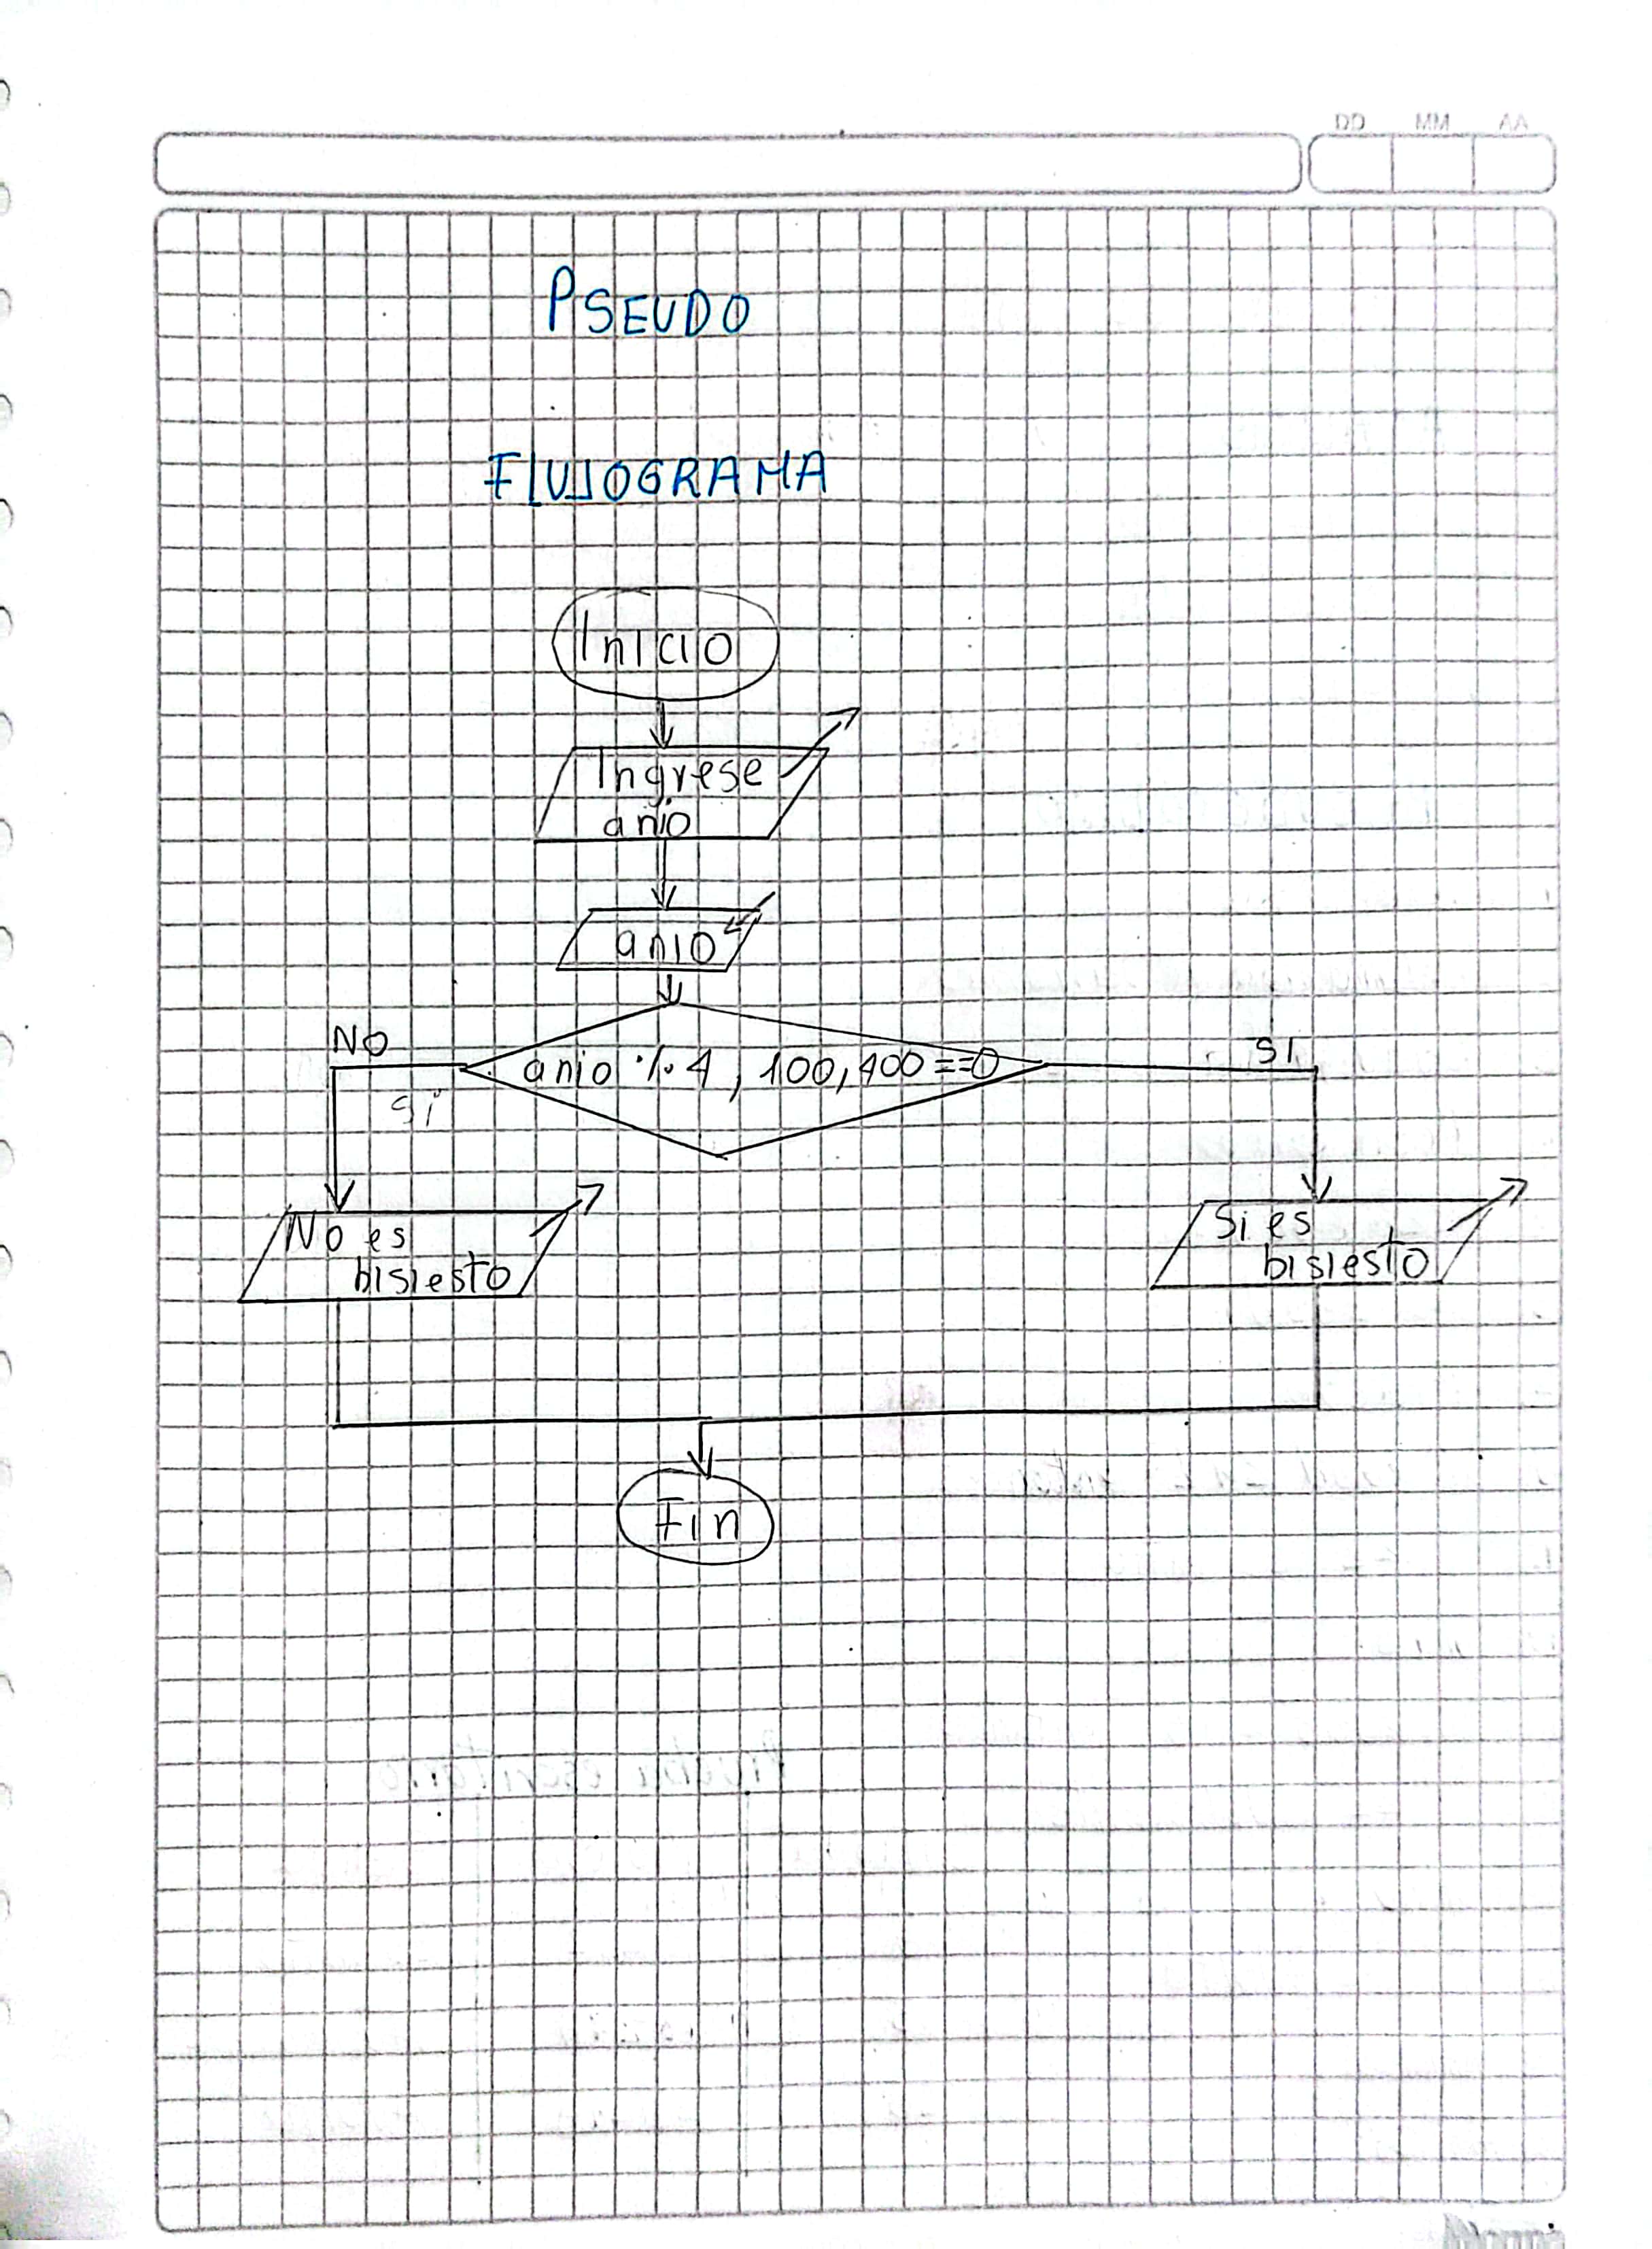 DD MM AA
PSEUDO
FLUJOGRAMA
Inicio
Ingrese
anio
anio
NO
anio % 4, 100, 400 == 0
SI
si
No es
bisiesto
Si es
bisiesto
Fin